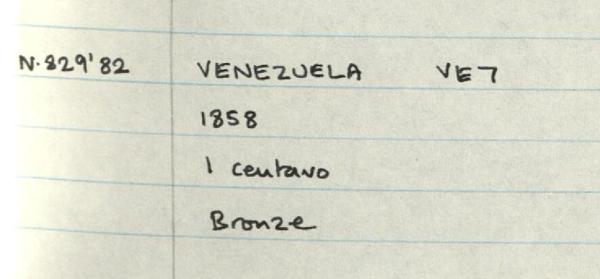 N.829'82 VENEZUELA VE7
1858
1 centavo
Bronze